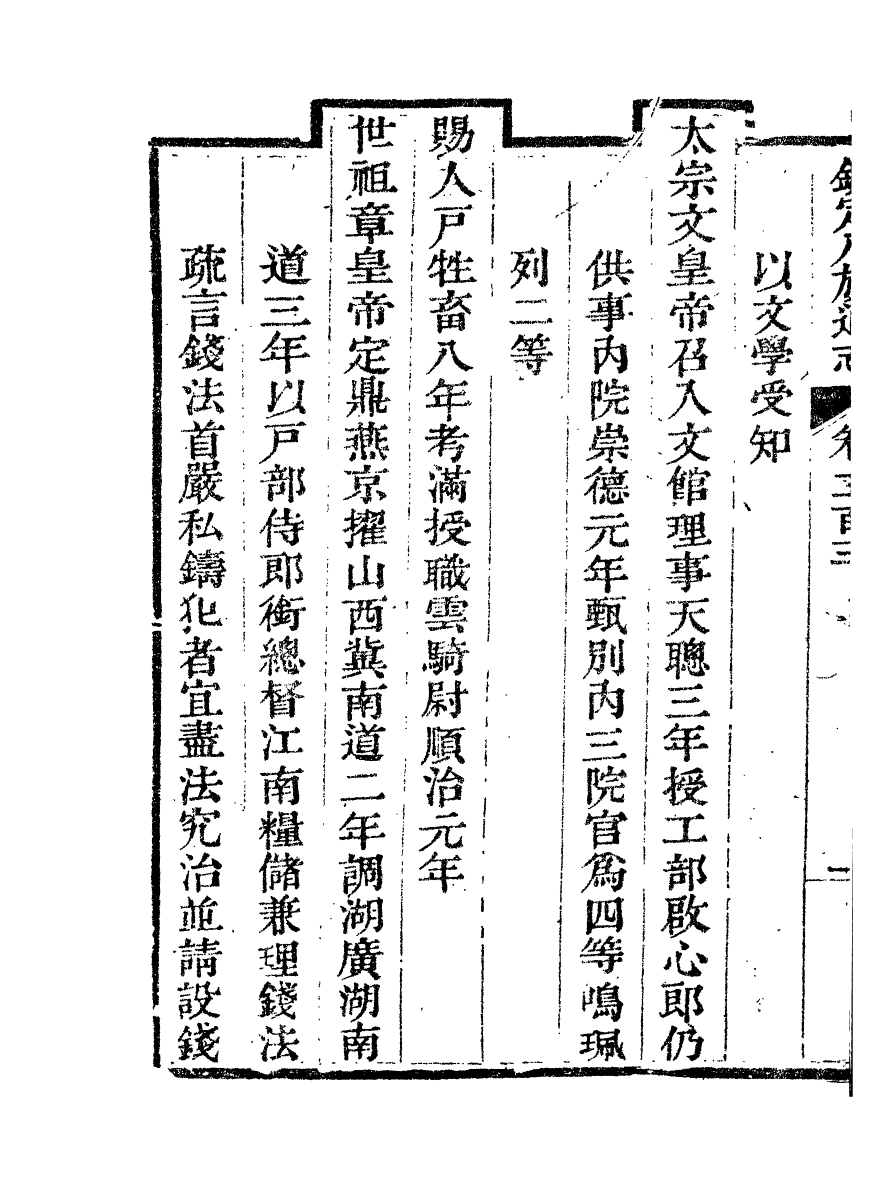 欽定八旗通志 卷二百三 一
以文學受知
太宗文皇帝召入文館理事天聰三年授工部啟心郎仍
供事內院崇德元年甄別內三院官爲四等鳴珮
列二等
賜人戶牲畜八年考滿授職雲騎尉順治元年
世祖章皇帝定鼎燕京擢山西冀南道二年調湖廣湖南
道三年以戶部侍郎銜總督江南糧儲兼理錢法
疏言錢法首嚴私鑄犯者宜盡法究治並請設錢